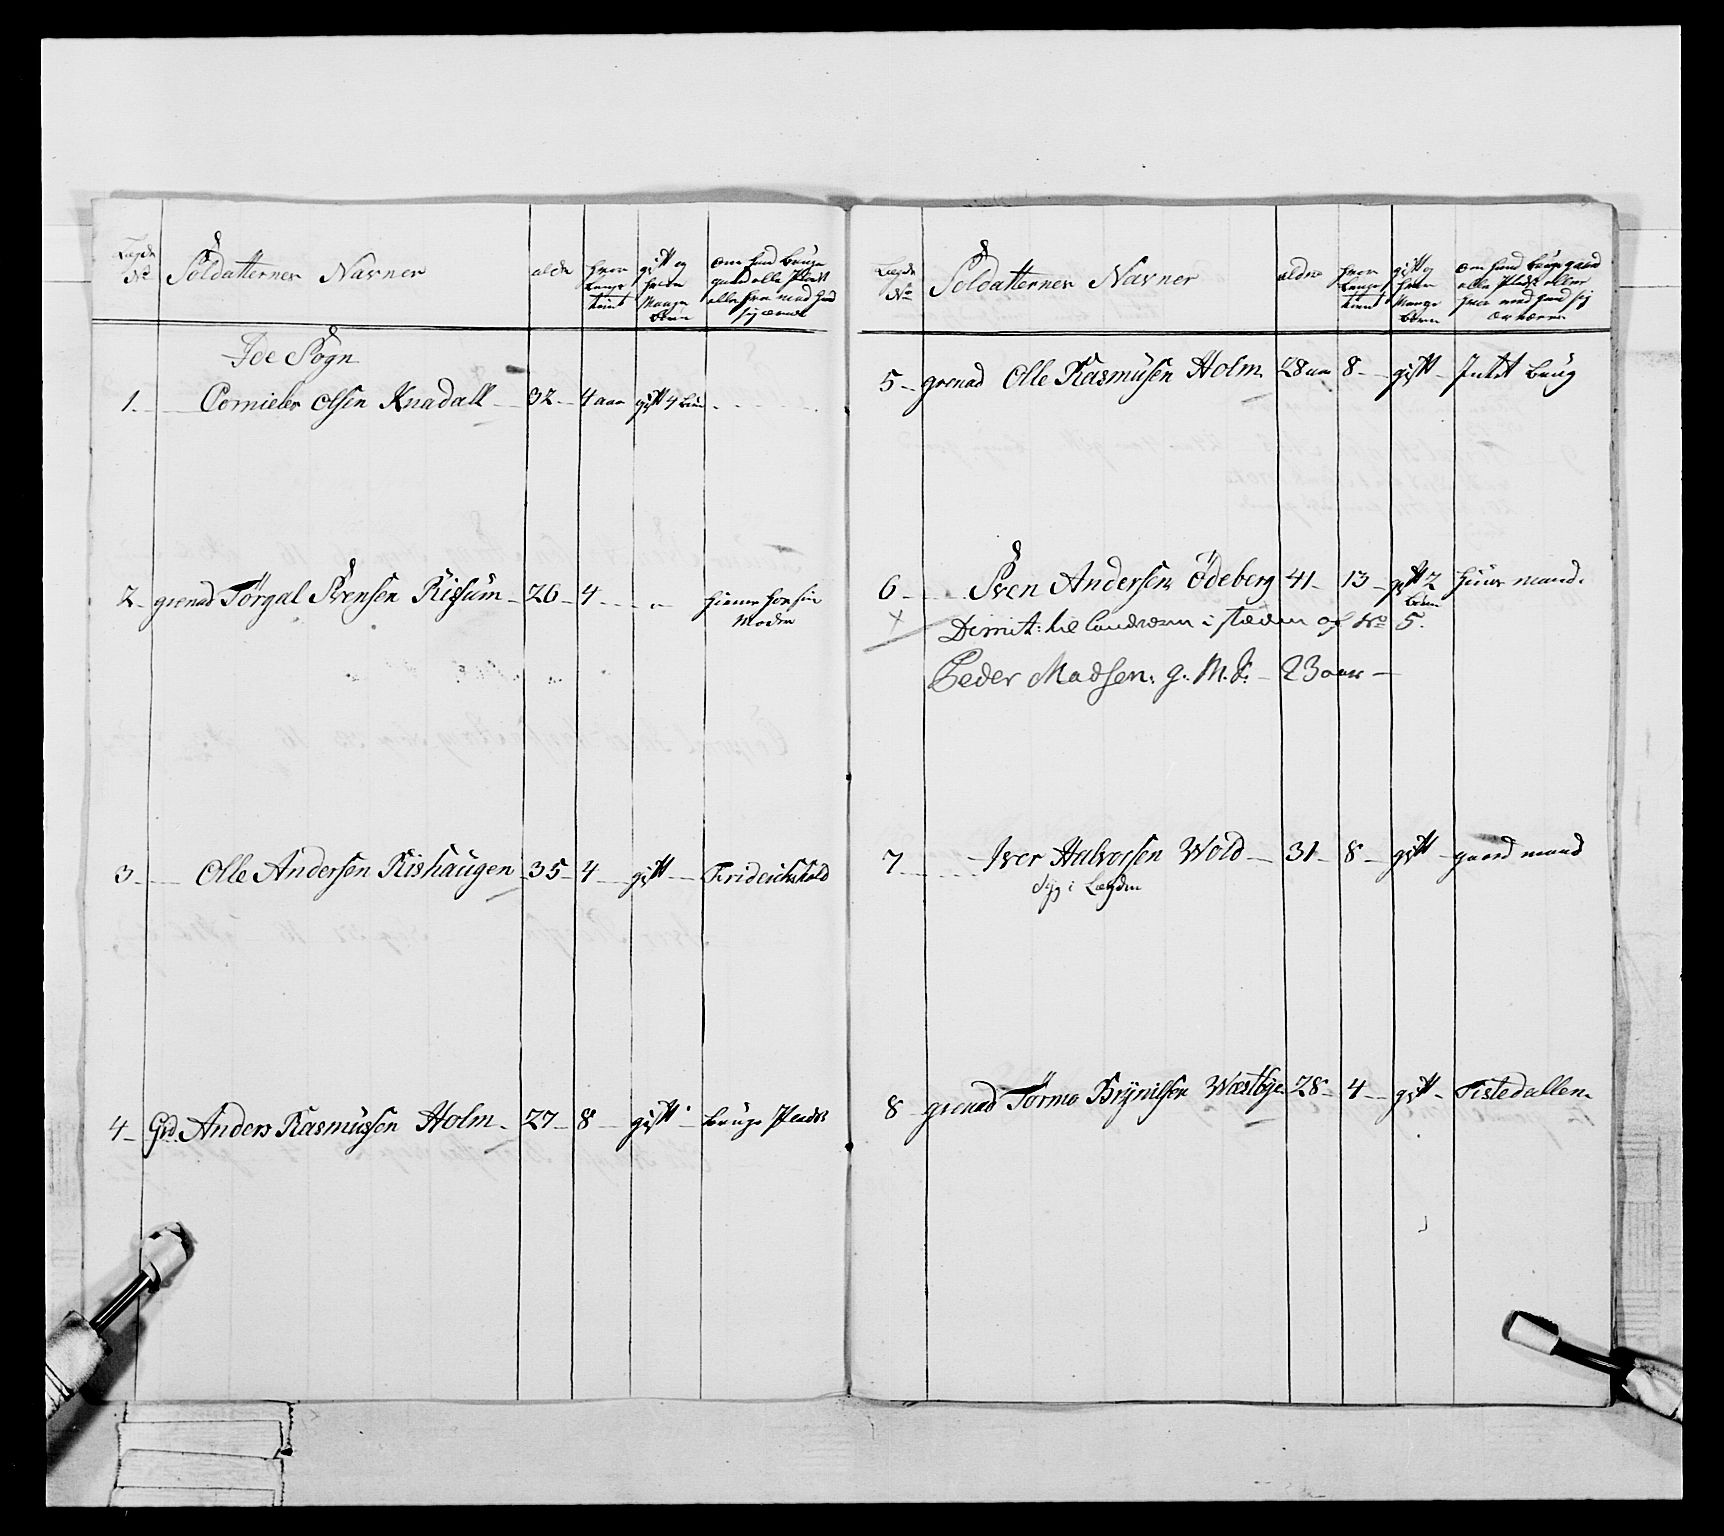 Lægds No Soldatternes Navner alder hvor længe tient gift og hvor Mange Børn om hand bruger gaard elle Plads elle hvor med hand sig ernær
Ide Sogn
1. Cornieler Olsen Knadall 32 4 aar gift 4 børn
2 grenad Törgal Svensen Risüm 20 4 tiener hos sin Moder
3 Olle Andersen Rishaügen 35 4 gift Friderichshald
4 Grd Anders Rasmüssen Holm 27 8 gift brüger Plads
Lægds No Soldatternes Navner alder hvor længe tient gift og hvor Mange Børn om hand brüger gaard elle Plads eller hvor med hand sig ernærer
5 grenad Olle Rasmüsen Holm 28 aar 8 gift Intet brüg
6 Sven Andersen Ödeberg 41 13 gift 2 børn hüus mand.
X Dimit: til landværn i stæden af No 5.
Peder Madsen. g. M. K. 23 aar
7 Iver Halvorsen Wold 31 8 gift gaard mand
Syg i Lægden
8 grenad Törmo Brÿnilsen Wæstbÿe 28 4 gift Tistedallen.